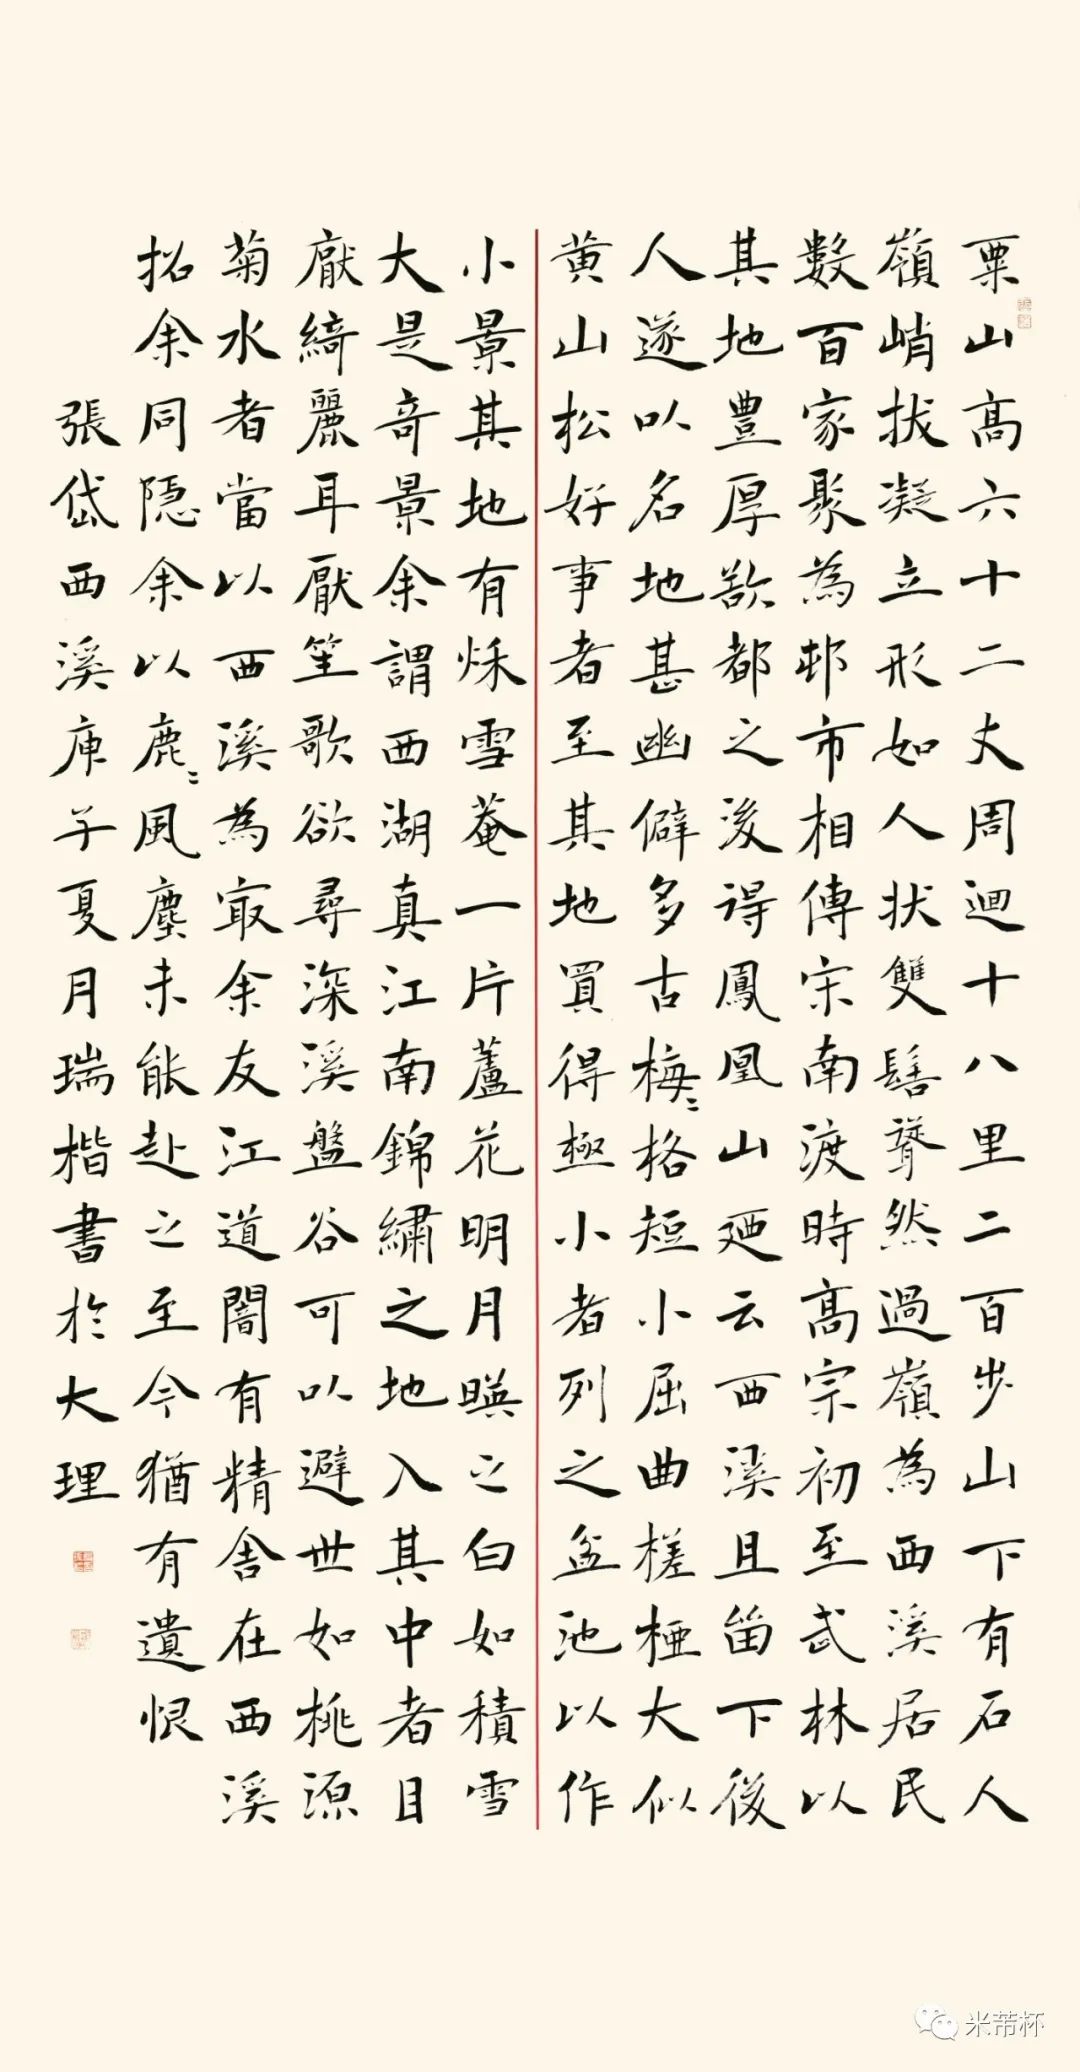 粟山高六十二丈周迴十八里二百步山下有石人
嶺峭拔凝立形如人狀雙髻聳然過嶺為西溪居民
數百家聚為邨市相傳宋南渡時高宗初至武林以
其地豐厚欲都之後得鳳凰山廼云西溪且留下後
人遂以名地甚幽僻多古梅〻格短小屈曲槎桠大似
黃山松好事者至其地買得極小者列之盆池以作
小景其地有秌雪菴一片蘆花明月暎之白如積雪
大是奇景余謂西湖真江南錦繡之地入其中者目
厭綺麗耳厭笙歌欲尋深溪盤谷可以避世如桃源
菊水者當以西溪為冣余友江道闇有精舍在西溪
招余同隱余以鹿〻風塵未能赴之至今猶有遺恨
張岱西溪庚子夏月瑞楷書於大理
米芾杯